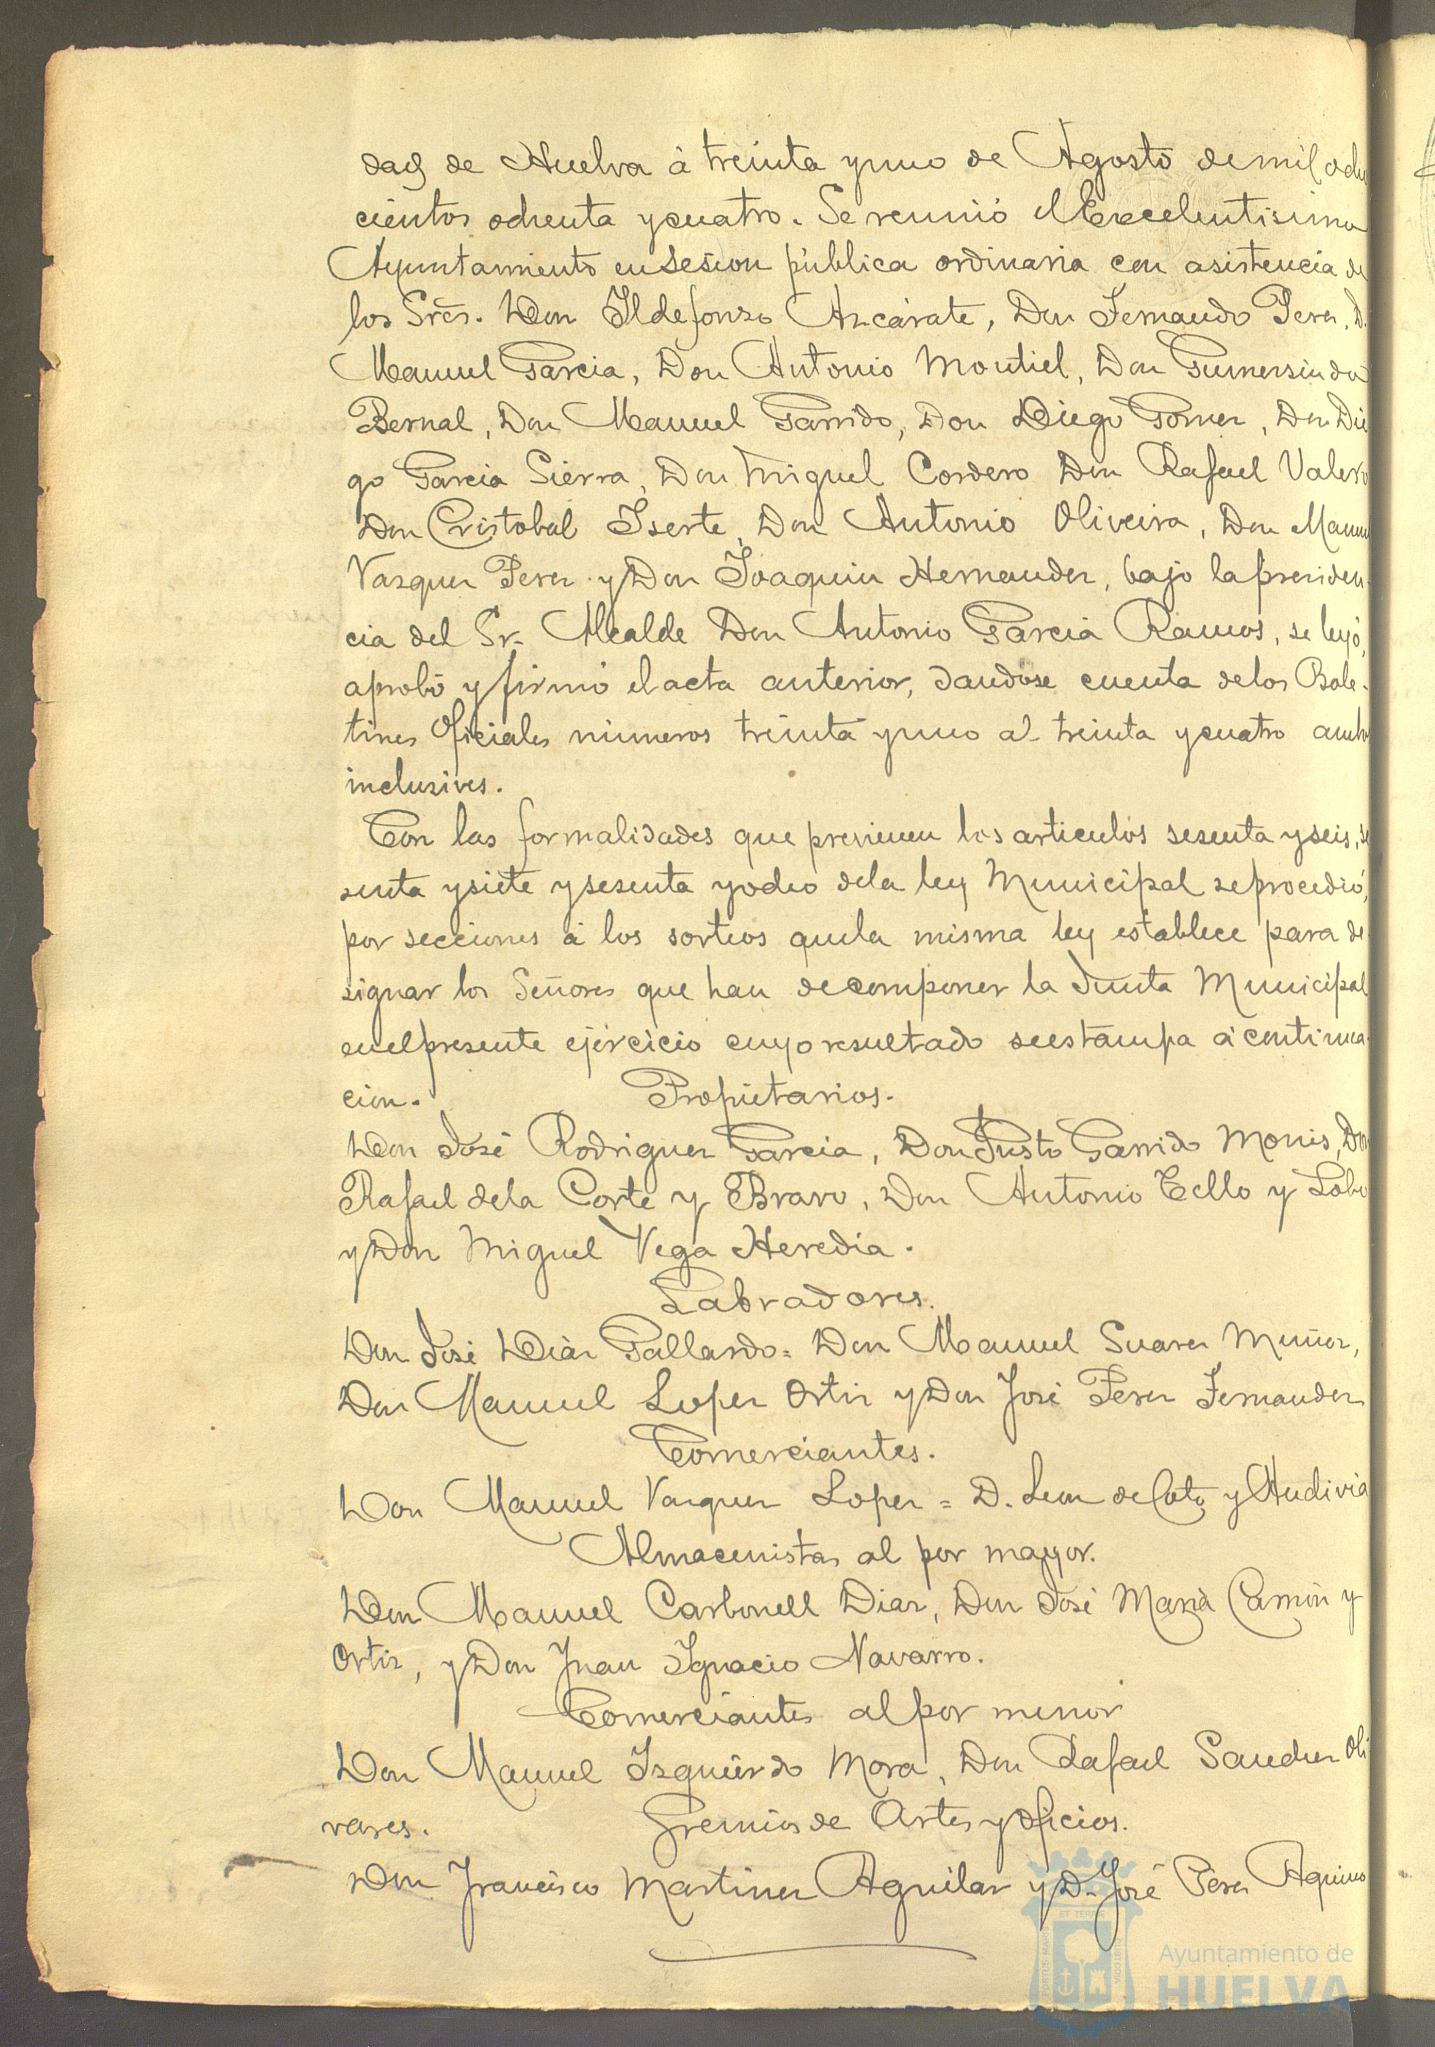 dad de Huelva á treinta y uno de Agosto de mil ocho
cientos ochenta y cuatro. Se reunió el Excelentisimo
Ayuntamiento en sesion pública ordinaria con asistencia de
los Sres. Don Ildefonso Azcárate, Don Fernando Perez, D.
Manuel Garcia, Don Antonio Montiel, Don Gumersindo
Bernal, Don Manuel Garrido, Don Diego Gomez, Don Die
go Garcia Sierra, Don Miguel Cordero Don Rafael Valero
Don Cristobal Iserte, Don Antonio Oliveira, Don Manuel
Vazquez Perez y Don Joaquin Hernandez, bajo la presiden
cia del Sr. Alcalde Don Antonio Garcia Ramos, se leyó,
aprobó y firmó el acta anterior, dandose cuenta de los Bole-
tines Oficiales números treinta y uno al treinta y cuatro ambos
inclusives.
Con las formalidades que previenen los articulos sesenta y seis, se
senta y siete y sesenta y ocho de la ley Municipal se procedió,
por secciones á los sorteos que la misma ley establece para de
signar los Señores que han de componer la Junta Municipal
en el presente ejércicio cuyo resultado se estampa á continua-
cion. Propietarios.
Don José Rodriguez Garcia, Don Justo Garrido Monis, Don
Rafael de la Corte y Bravo, Don Antonio Tello y Lobo
y Don Miguel Vega Heredia.
Labradores.
Don José Diáz Gallardo = Don Manuel Suarez Muñoz,
Don Manuel Lopez Ortiz y Don José Perez Fernandez
Comerciantes.
Don Manuel Vazquez Lopez = D. Leon de y
Almacenistas al por mayor.
Don Manuel Carbonell Diaz, Don José Maria y
Ortiz, y Don Juan Ignacio Navarro.
Comerciantes al por menor
Don Manuel Izquierdo Mora, Don Rafael Sanchez Oli
vares. Gremios de Artes y oficios.
Don Francisco Martinez Aguilar y D. José Perez Aquino
Ayuntamiento de
HUELVA